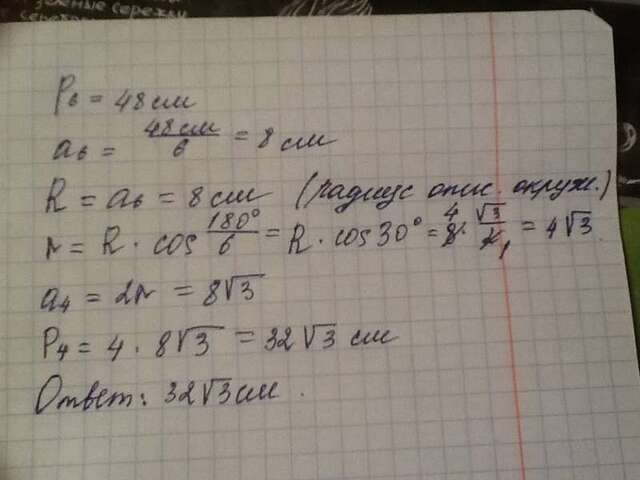 зелёные серёжки
P₆ = 48 см
a₆ = 48 см/6 = 8 см
R = a₆ = 8 см (радиус опис. окруж.)
r = R · cos 180°/6 = R · cos 30° = 8 4 · √3/2 1 = 4√3
a₄ = 2r = 8√3
P₄ = 4 · 8√3 = 32√3 см
Ответ: 32√3 см.